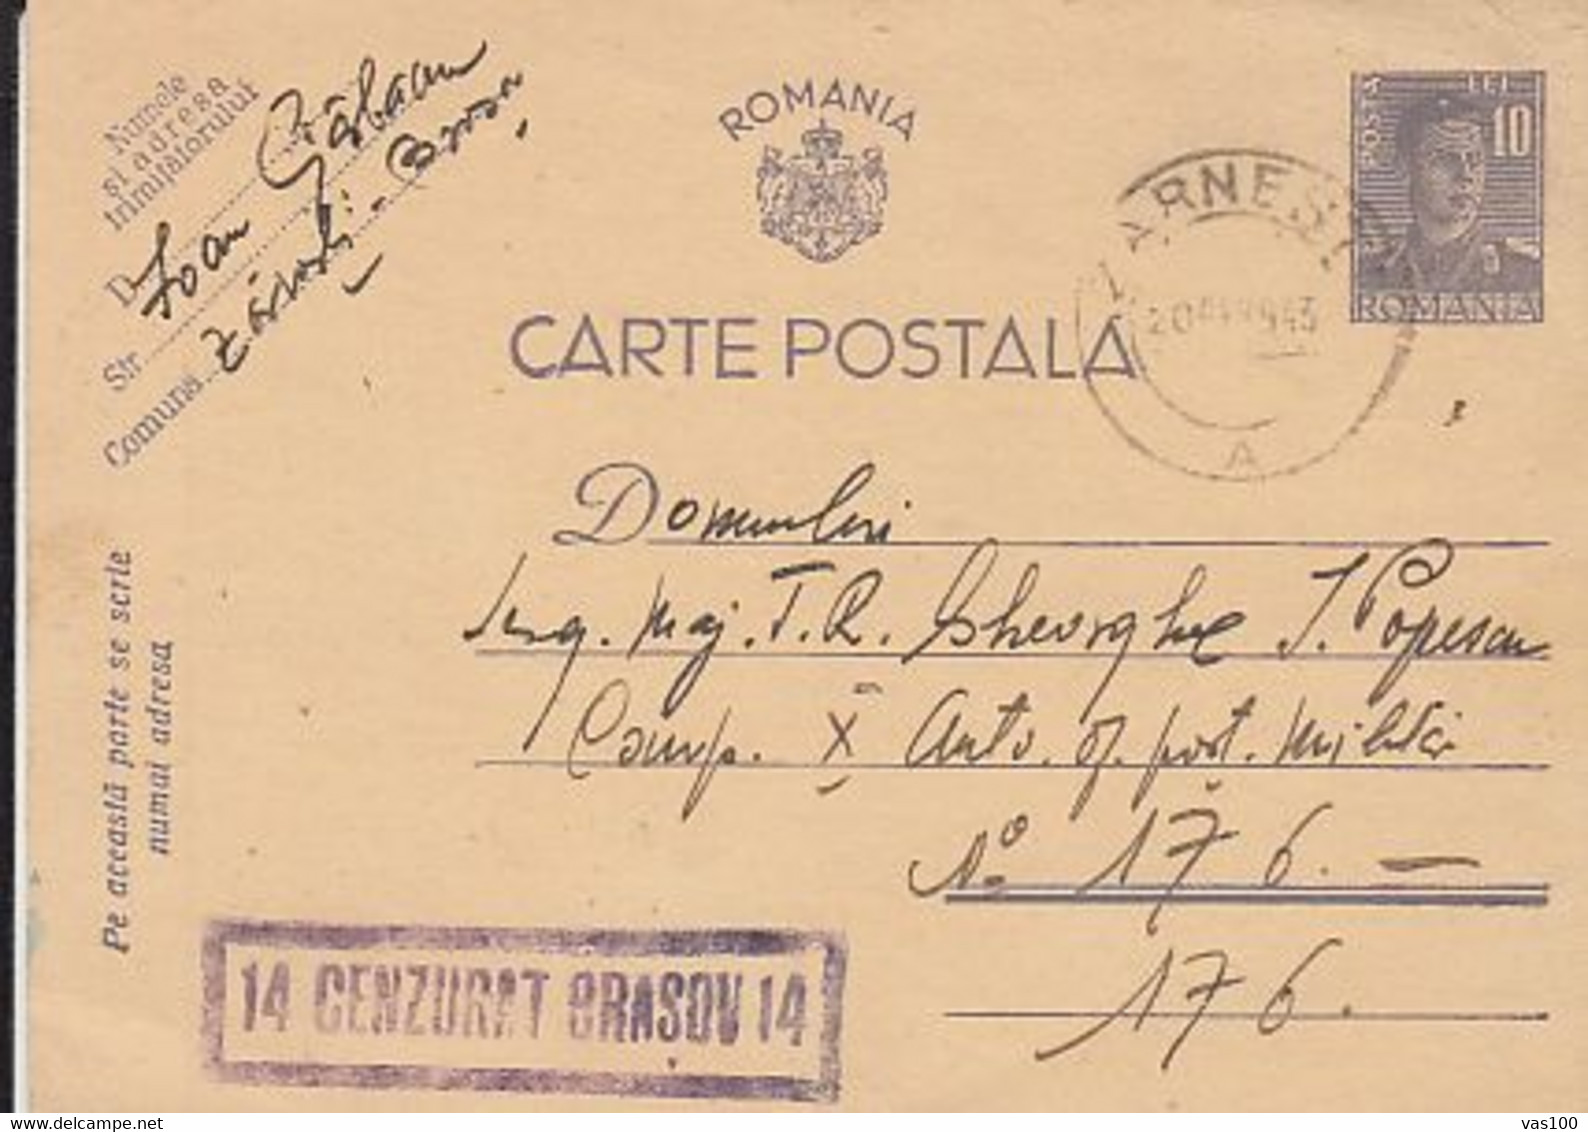 Numele
și adresa
trimițătorului
D. Ioan
Str.
Comuna Zărnești -
ROMANIA
CARTE POSTALA
POSTA LEI 10
ROMANIA
ZARNESTI
20 943
A
Domnului
Ing. Maj. T. R. Gheorghe I. Popescu
Comp. X Auto. of. post. Militar
No 176. —
176.
Pe această parte se scrie
numai adresa
14 CENZURAT BRASOV 14
delcampe.net
vas100